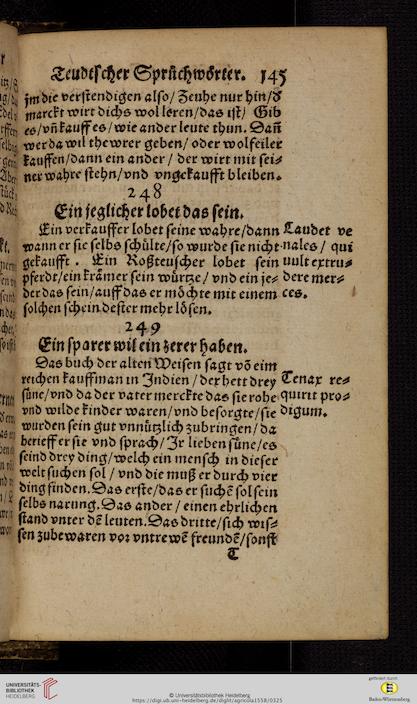 Teudtscher Sprüchwörter. 145
jm die verstendigen also/ Zeuhe nur hin/ d̕
marckt wirt dichs wol leren/ das ist/ Gib
es/ vñ kauff es/ wie ander leute thun. Dañ
wer da wil thewrer geben/ oder wolfeiler
kauffen/ dann ein ander/ der wirt mit sei-
ner wahre stehn/ vnd vngekaufft bleiben.
248
Ein jeglicher lobet das sein.
Ein verkauffer lobet seine wahre/ dann
wann er sie selbs schülte/ so wurde sie nicht
gekaufft. Ein Roßteuscher lobet sein
pferdt/ ein krämer sein würtze/ vnd ein je-
der das sein/ auff das er möchte mit einem
solchen schein dester mehr lösen.
Laudet ve
nales/ qui
uult extru-
dere mer-
ces.
249
Ein sparer wil ein zerer haben.
Das buch der alten Weisen sagt võ eim
reichen kauffman in Indien/ der hett drey
süne/ vnd da der vater merckte das sie rohe
vnd wilde kinder waren/ vnd besorgte/ sie
wurden sein gut vnnützlich zubringen/ da
berieff er sie vnd sprach/ Ir lieben süne/ es
seind drey ding/ welch ein mensch in dieser
welt suchen sol/ vnd die muß er durch vier
ding finden. Das erste/ das er suchẽ sol sein
selbs narung. Das ander/ einen ehrlichen
stand vnter dẽ leuten. Das dritte/ sich wis-
sen zubewaren vor vntrewẽ freundẽ/ sonst
Tenax re-
quirit pro-
digum.
T
UNIVERSITÄTS-
BIBLIOTHEK
HEIDELBERG
© Universitätsbibliothek Heidelberg
https://digi.ub.uni-heidelberg.de/diglit/agricola1558/0325
gefördert durch
Baden-Württemberg